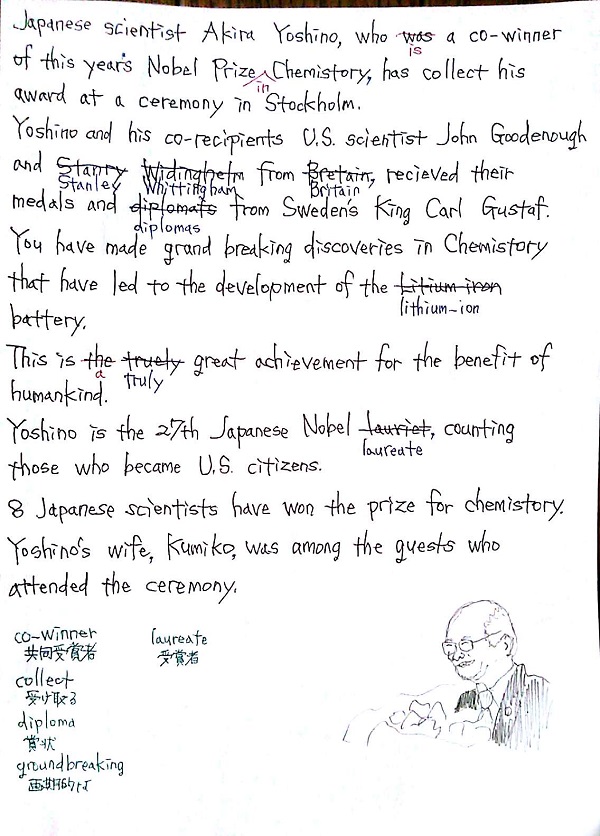 Japanese scientist Akira Yoshino, who was a co-winner
is
of this year's Nobel Prize Chemistory, has collect his
in
award at a ceremony in Stockholm.
Yoshino and his co-recipients U.S. scientist John Goodenough
and Stanry Widinghelm from Bretain, recieved their
Stanley Whittingham Britain
medals and diplomats from Sweden's King Carl Gustaf.
diplomas
You have made grand breaking discoveries in Chemistory
that have led to the development of the Litium-iron
lithium-ion
battery.
This is the truely great achievement for the benefit of
a truly
humankind.
Yoshino is the 27th Japanese Nobel lauriet, counting
laureate
those who became U.S. citizens.
8 Japanese scientists have won the prize for chemistory.
Yoshino's wife, Kumiko, was among the guests who
attended the ceremony.
co-winner laureate
共同受賞者 受賞者
collect
受け取る
diploma
賞状
groundbreaking
画期的な